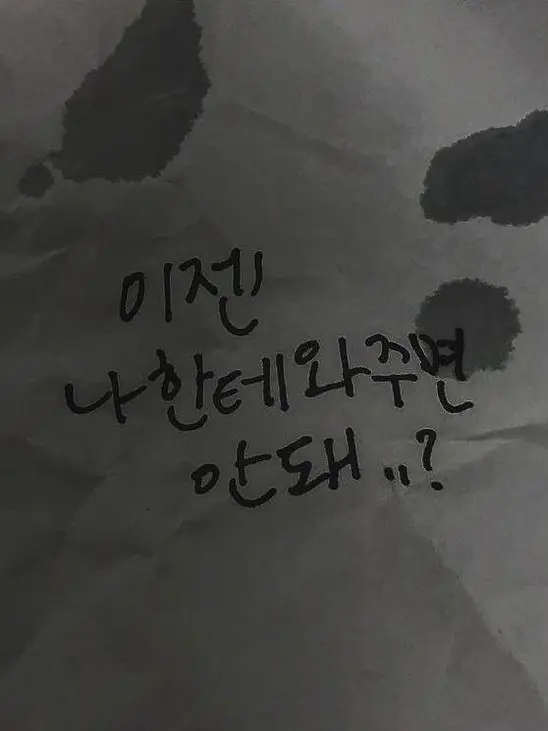 이젠
나한테와주면
안돼..?